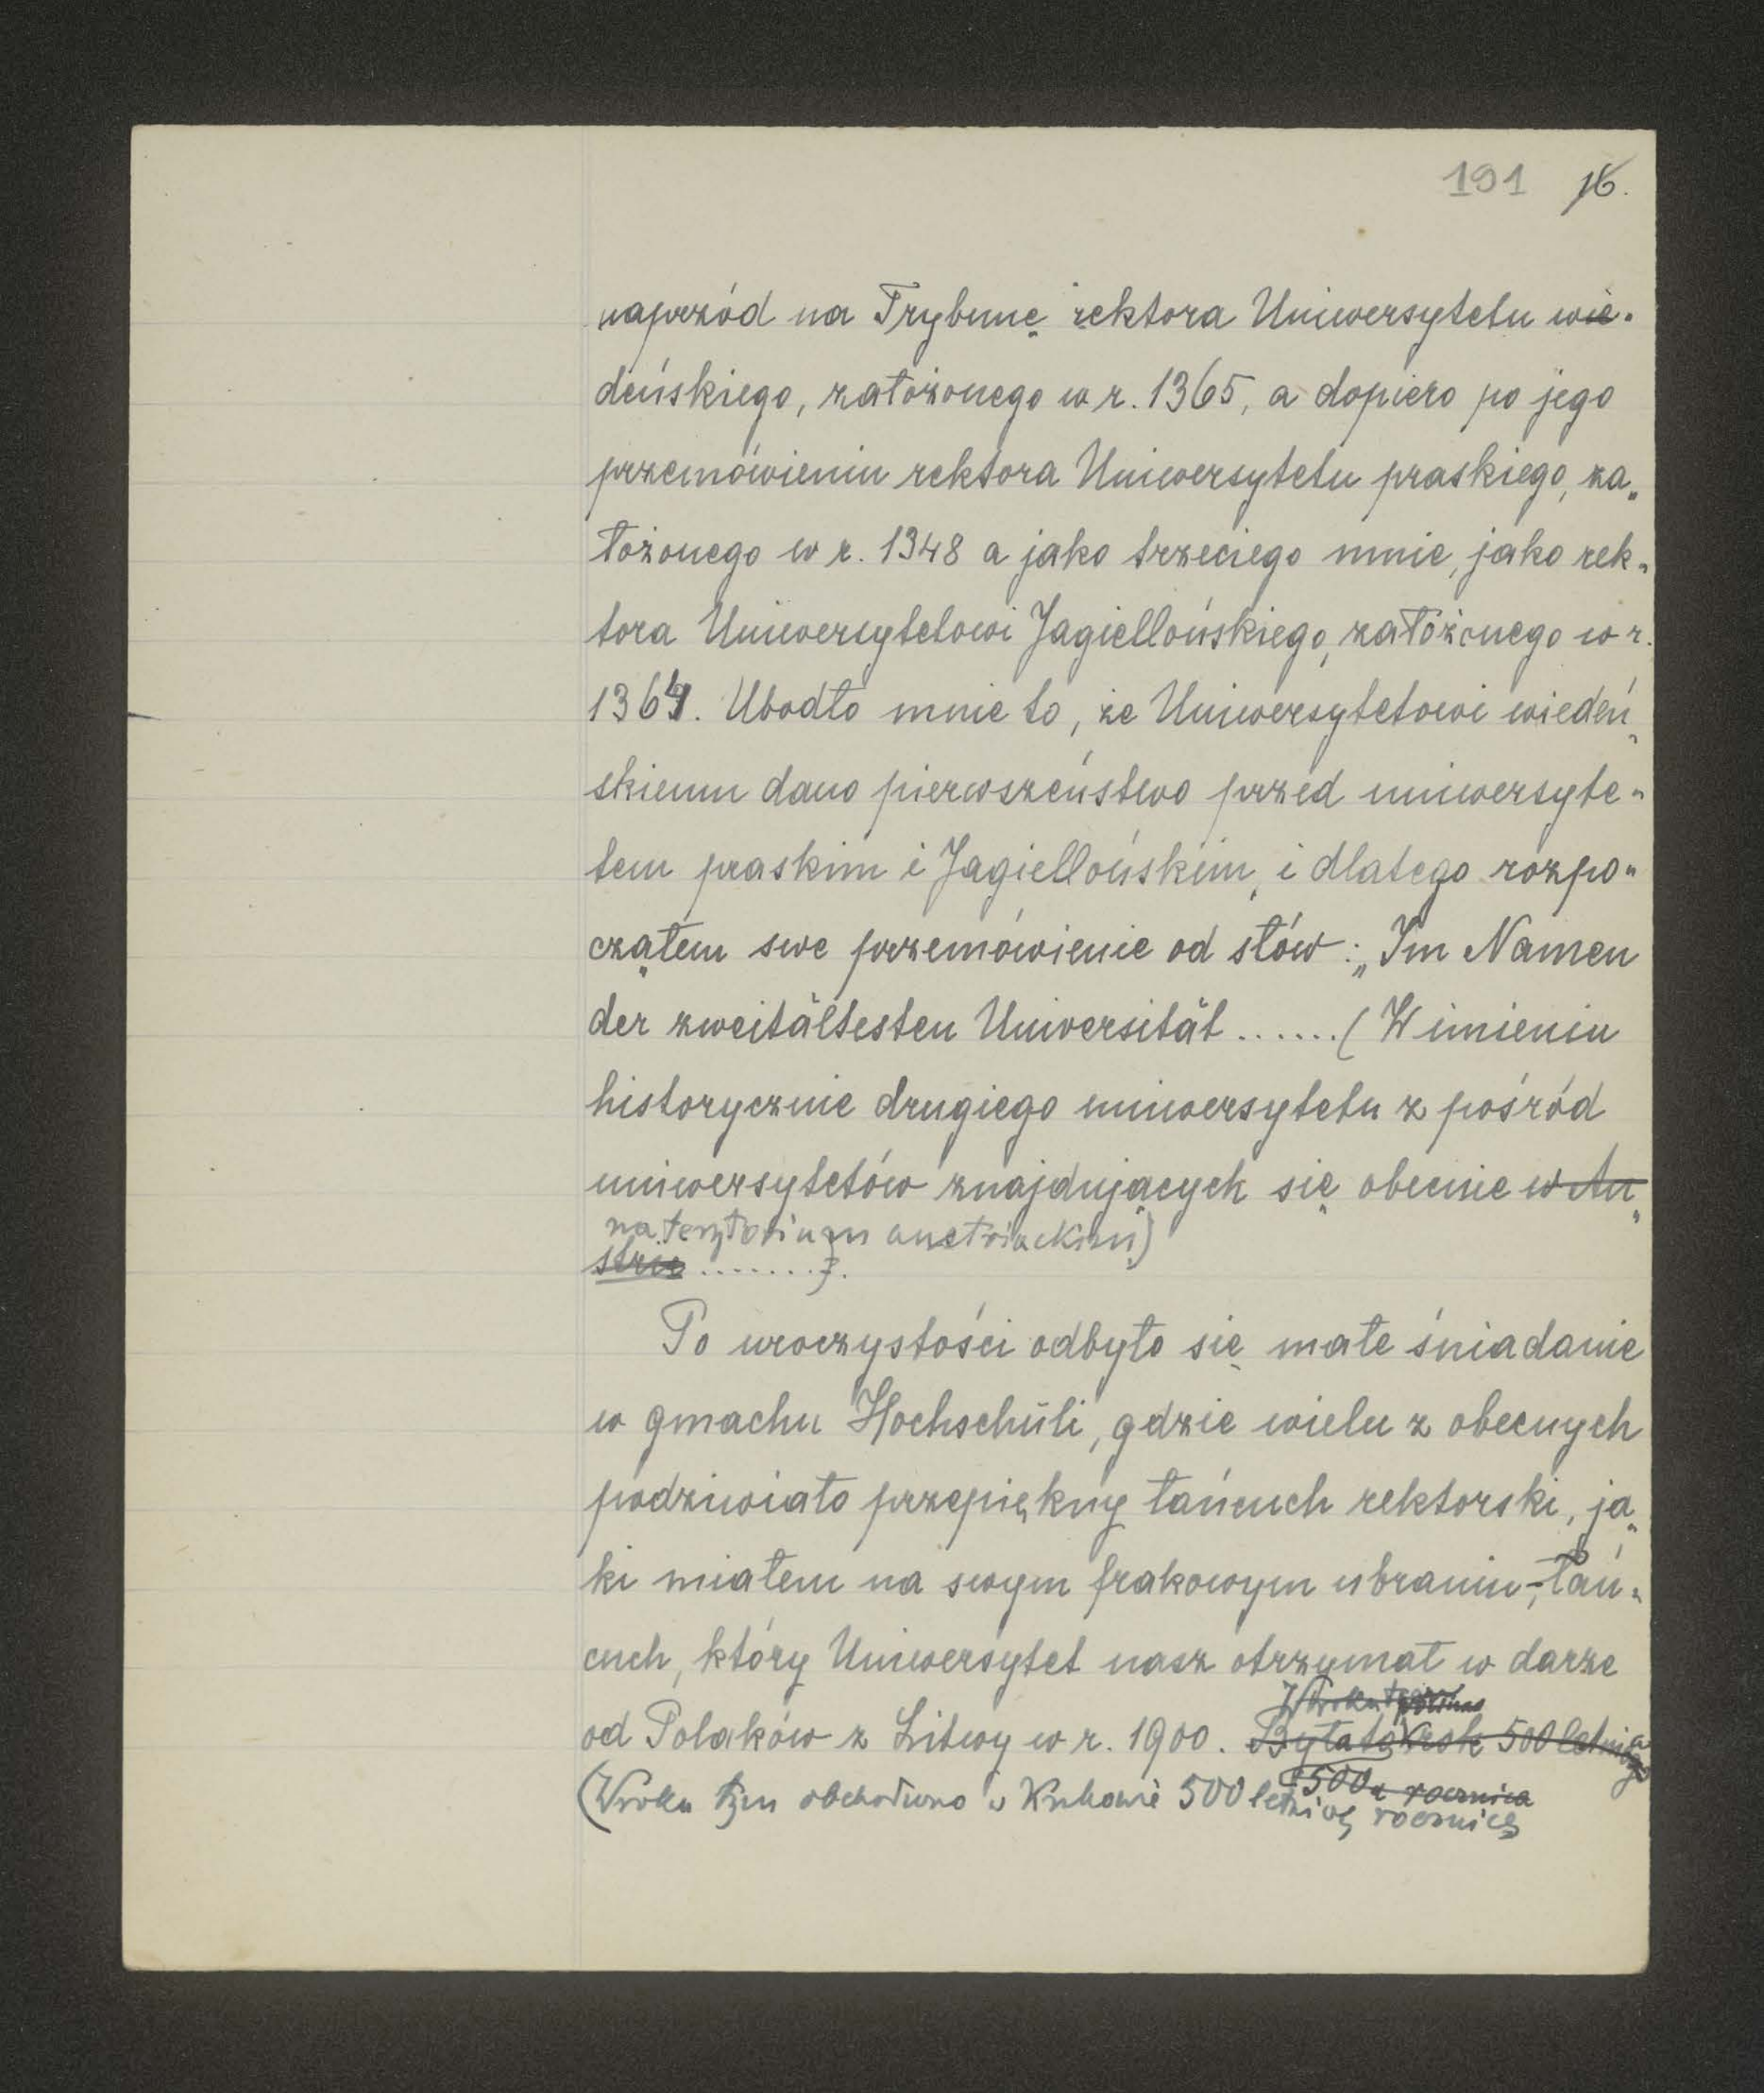 191 16.
naprzód na Trybunę rektora Uniwersytetu wie-
deńskiego, założonego w r. 1365, a dopiero po jego
przemówieniu rektora Uniwersytetu praskiego, za-
łożonego w r. 1348 a jako trzeciego mnie, jako rek-
tora Uniwersytetowi Jagiellońskiego, założonego w r.
1364. Ubodło mnie to, że Uniwersytetowi wiedeń-
skiemu dano pierwszeństwo przed uniwersyte-
tem praskim i Jagiellońskim, i dlatego rozpo-
cząłem swe przemówienie od słów: „Im Namen
der zweitältesten Universität ...... (W imieniu
historycznie drugiego uniwersytetu z pośród
uniwersytetów znajdujących się obecnie w Au-
na terytorium austriackim)
strii ........).
Po uroczystości odbyło się małe śniadanie
w gmachu Hochschuli, gdzie wielu z obecnych
podziwiało przepiękny łańcuch rektorski, ja-
ki miałem na swym frakowym ubraniu, - łań-
cuch, który Uniwersytet nasz otrzymał w darze
W roku tym
od Polaków z Litwy w r. 1900. Była to 500 letnia
500 a rocznica
(W roku tym obchodzono w Krakowie 500 letnią rocznicę